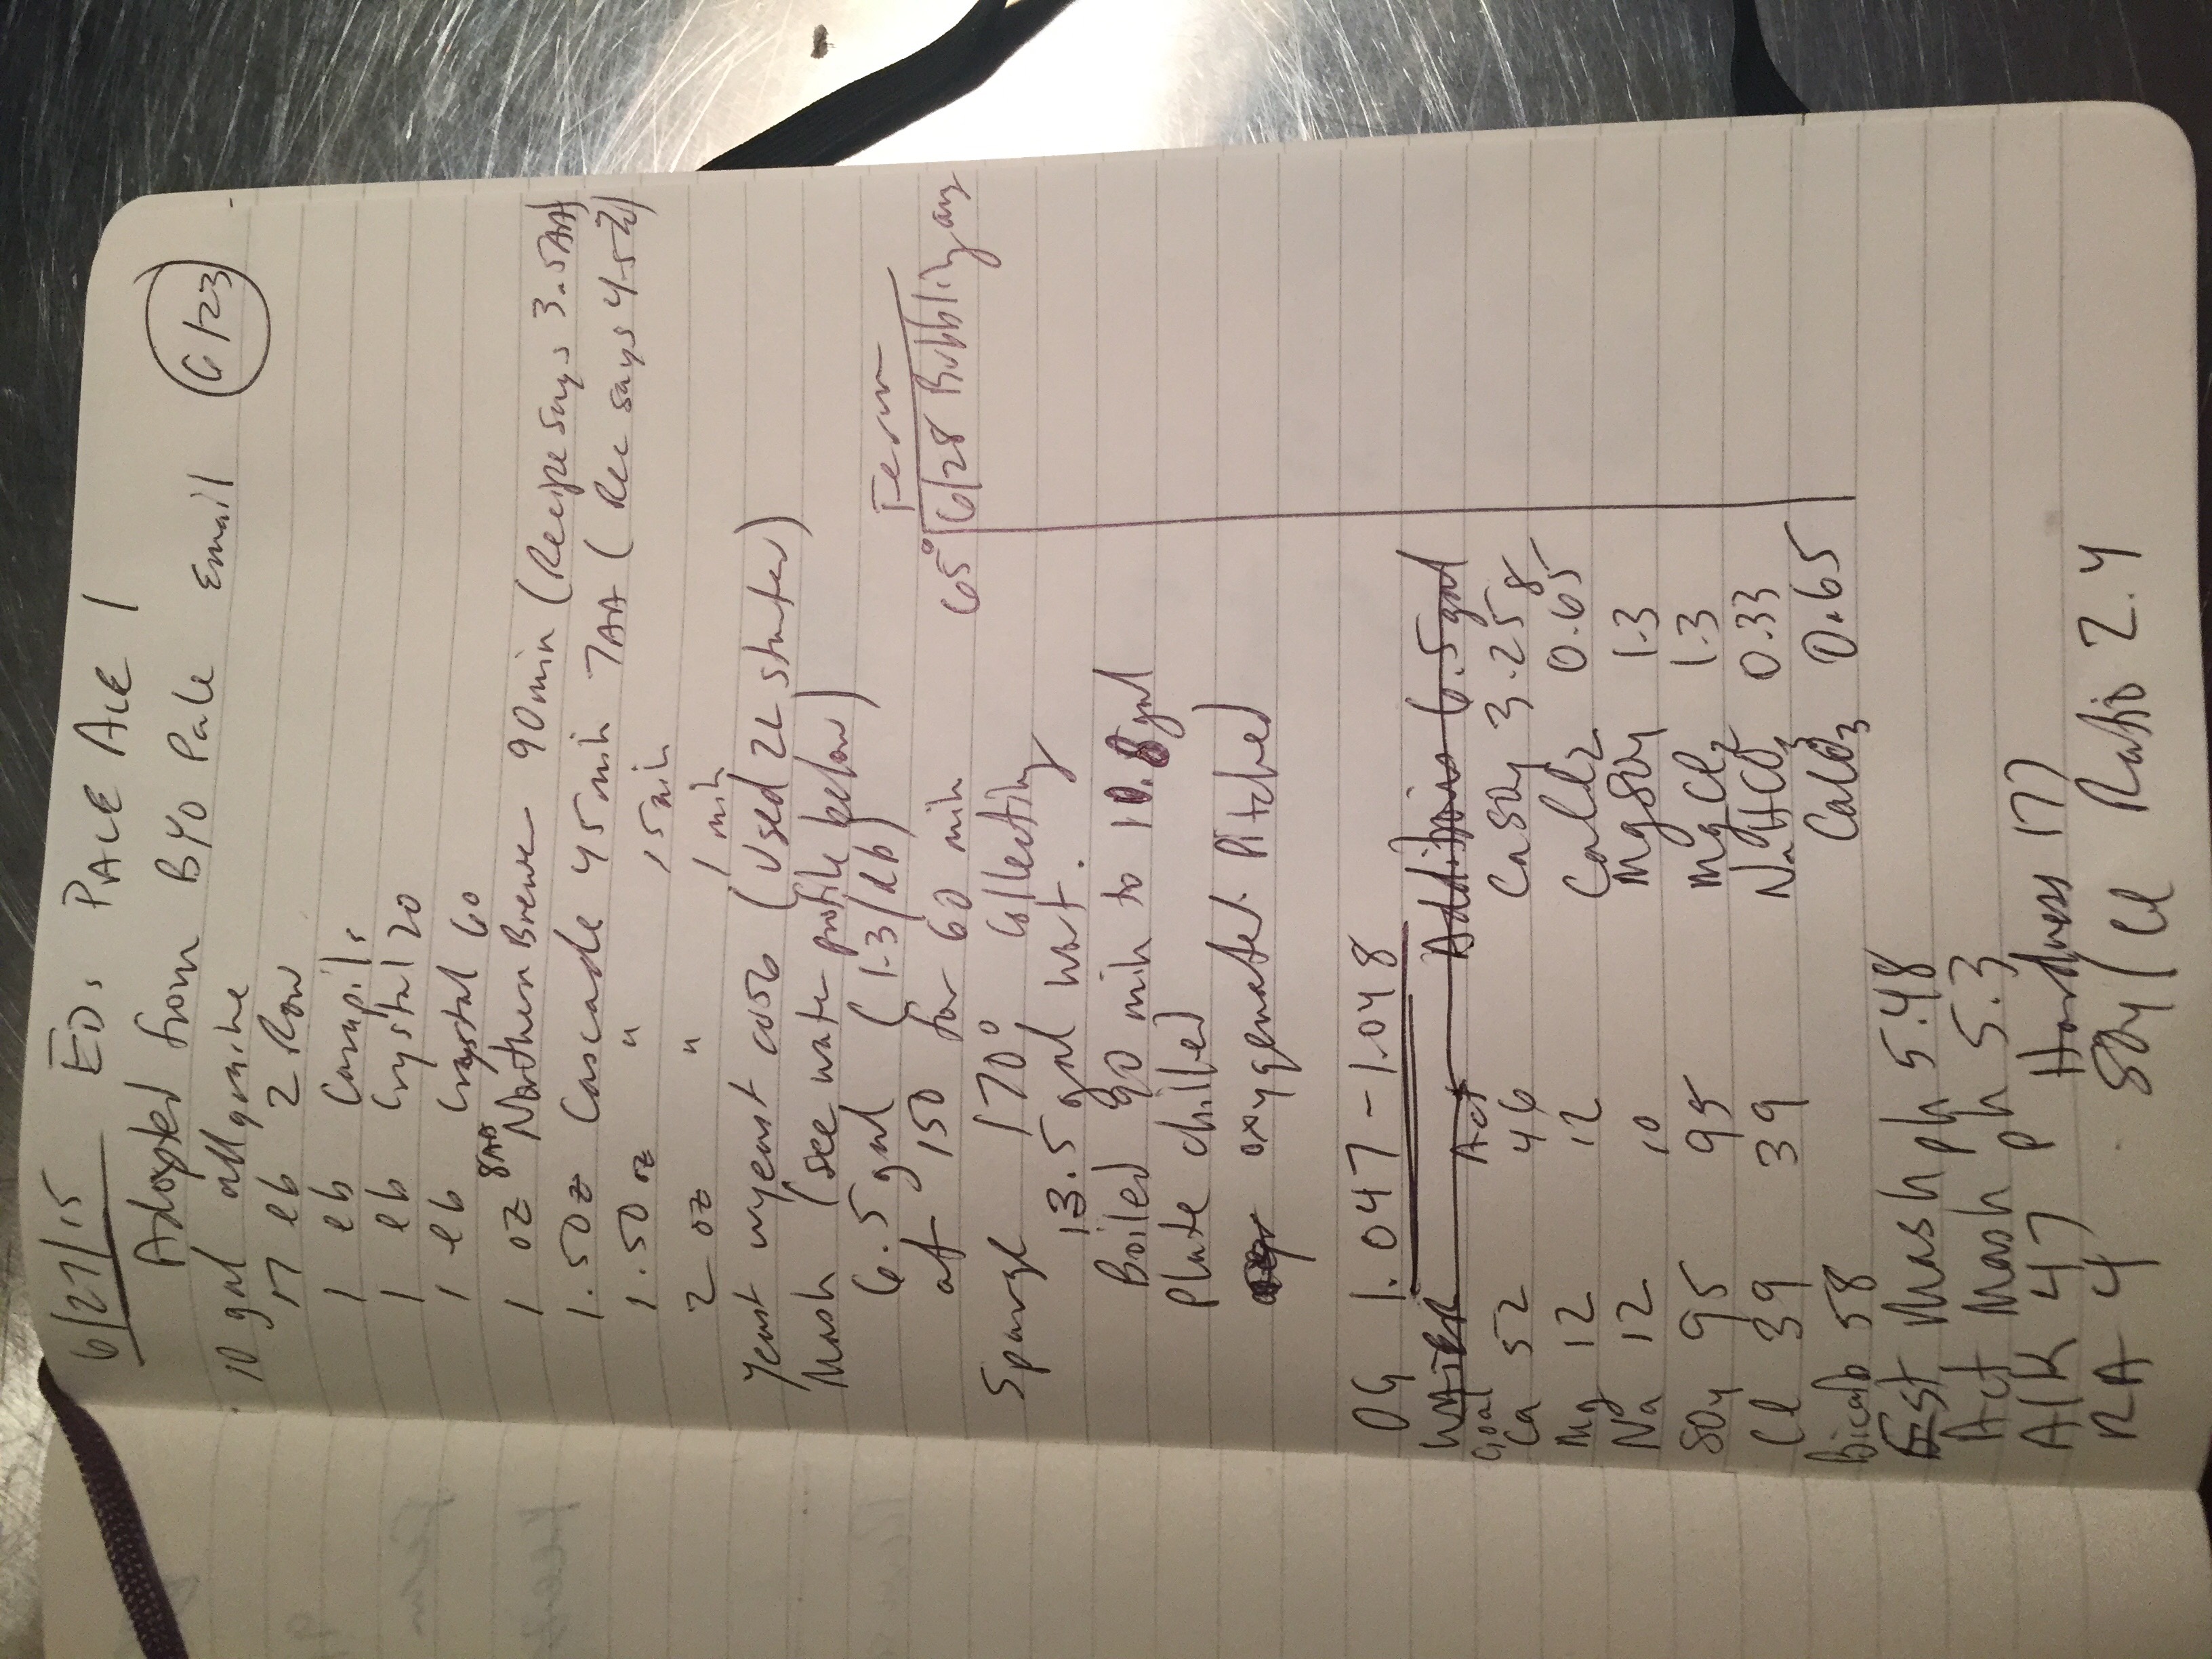 6/27/15 ED. PALE ALE 1
Adapted from BYO Pale Email 6/23
10 gal all graine
17 lb 2 Row
1 lb Carapils
1 lb Crystal 20
1 lb Crystal 60
1 oz 8AA Northern Brewer 90 min (Recipe says 3.5AA)
1.50z Cascade 45 min 7AA (Rec says 4.5
1.50 oz " 15 min
2 oz " 1 min
Yeast wyeast 1056 (Used 2L starter)
Mash (see water profile below)
6.5 gal (1.3/lb)
at 150 for 60 min
Sparge 170° Collecting
13.5 gal wort.
Boiled 90 min to 10.8 gal
Plate chilled
oxygenated. Pitched
Ferm
65° 6/28 Bubbling away
OG 1.047 - 1.048
Water Additions 6.5 gal
Goal Act
Ca 52 46 CaSO4 3.25 g
Mg 12 12 CaCl2 0.65
Na 12 10 MgSO4 1.3
SO4 95 95 MgCl2 1.3
Cl 39 39 NaHCO3 0.33
Bicarb 58 CaCO3 0.65
Est Mash ph 5.48
Act Mash ph 5.3
Alk 47 Hardness 177
RA 4 SO4/Cl Ratio 2.4